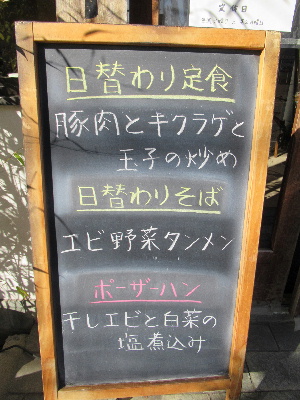 定休日
日替わり定食
豚肉とキクラゲと
玉子の炒め
日替わりそば
エビ野菜タンメン
ポーザーハン
干しエビと白菜の
塩煮込み